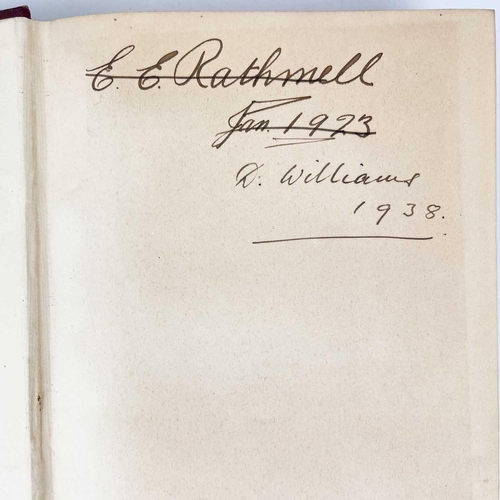 E. E. Rathmell
Jan. 1923
D. Williams
1938.